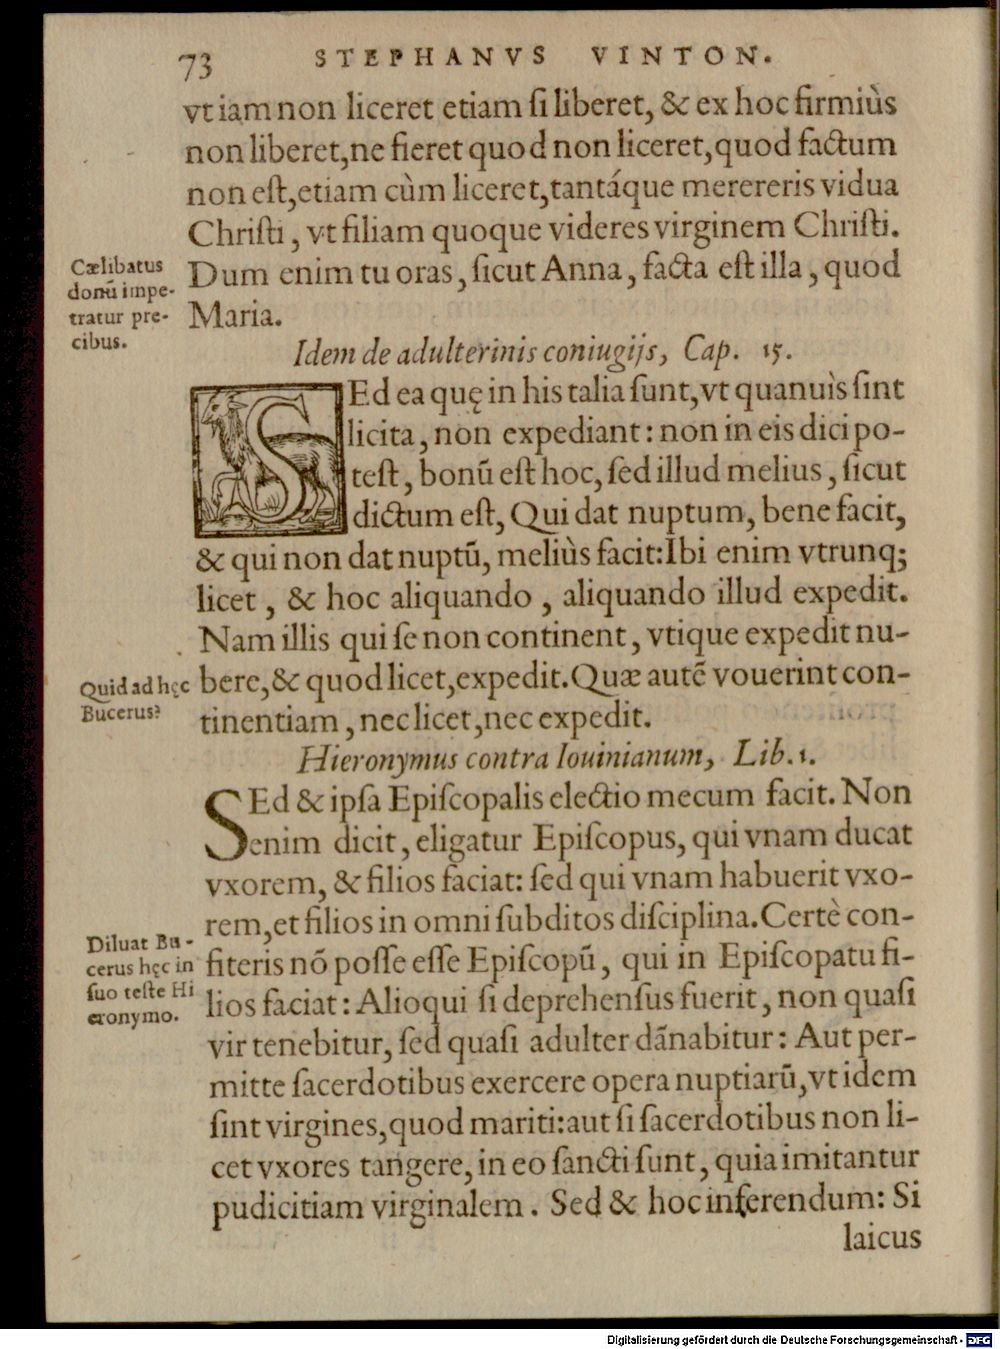 73 STEPHANVS VINTON.
vt iam non liceret etiam ſi liberet, & ex hoc firmiùs
non liberet, ne fieret quod non liceret, quod factum
non eſt, etiam cùm liceret, tantáque merereris vidua
Chriſti, vt filiam quoque videres virginem Chriſti.
Dum enim tu oras, ſicut Anna, facta eſt illa, quod
Maria.
Cælibatus
donū impe-
tratur pre-
cibus.
Idem de adulterinis coniugijs, Cap. 15.
SEd ea quę in his talia ſunt, vt quanuìs ſint
licita, non expediant: non in eis dici po-
teſt, bonū eſt hoc, ſed illud melius, ſicut
dictum eſt, Qui dat nuptum, bene facit,
& qui non dat nuptū, meliùs facit: Ibi enim vtrunq;
licet, & hoc aliquando, aliquando illud expedit.
Nam illis qui ſe non continent, vtique expedit nu-
bere, & quod licet, expedit. Quæ autē vouerint con-
tinentiam, nec licet, nec expedit.
Quid ad hęc
Bucerus?
Hieronymus contra Iouinianum, Lib. 1.
SEd & ipſa Epiſcopalis electio mecum facit. Non
enim dicit, eligatur Epiſcopus, qui vnam ducat
vxorem, & filios faciat: ſed qui vnam habuerit vxo-
rem, et filios in omni ſubditos diſciplina. Certè con-
fiteris nō poſſe eſſe Epiſcopū, qui in Epiſcopatu fi-
lios faciat: Alioqui ſi deprehenſus fuerit, non quaſi
vir tenebitur, ſed quaſi adulter dānabitur: Aut per-
mitte ſacerdotibus exercere opera nuptiarū, vt idem
ſint virgines, quod mariti: aut ſi ſacerdotibus non li-
cet vxores tangere, in eo ſancti ſunt, quia imitantur
pudicitiam virginalem. Sed & hoc inferendum: Si
laicus
Diluat Bu-
cerus hęc in
ſuo teſte Hi
eronymo.
Digitalisierung gefördert durch die Deutsche Forschungsgemeinschaft - DFG